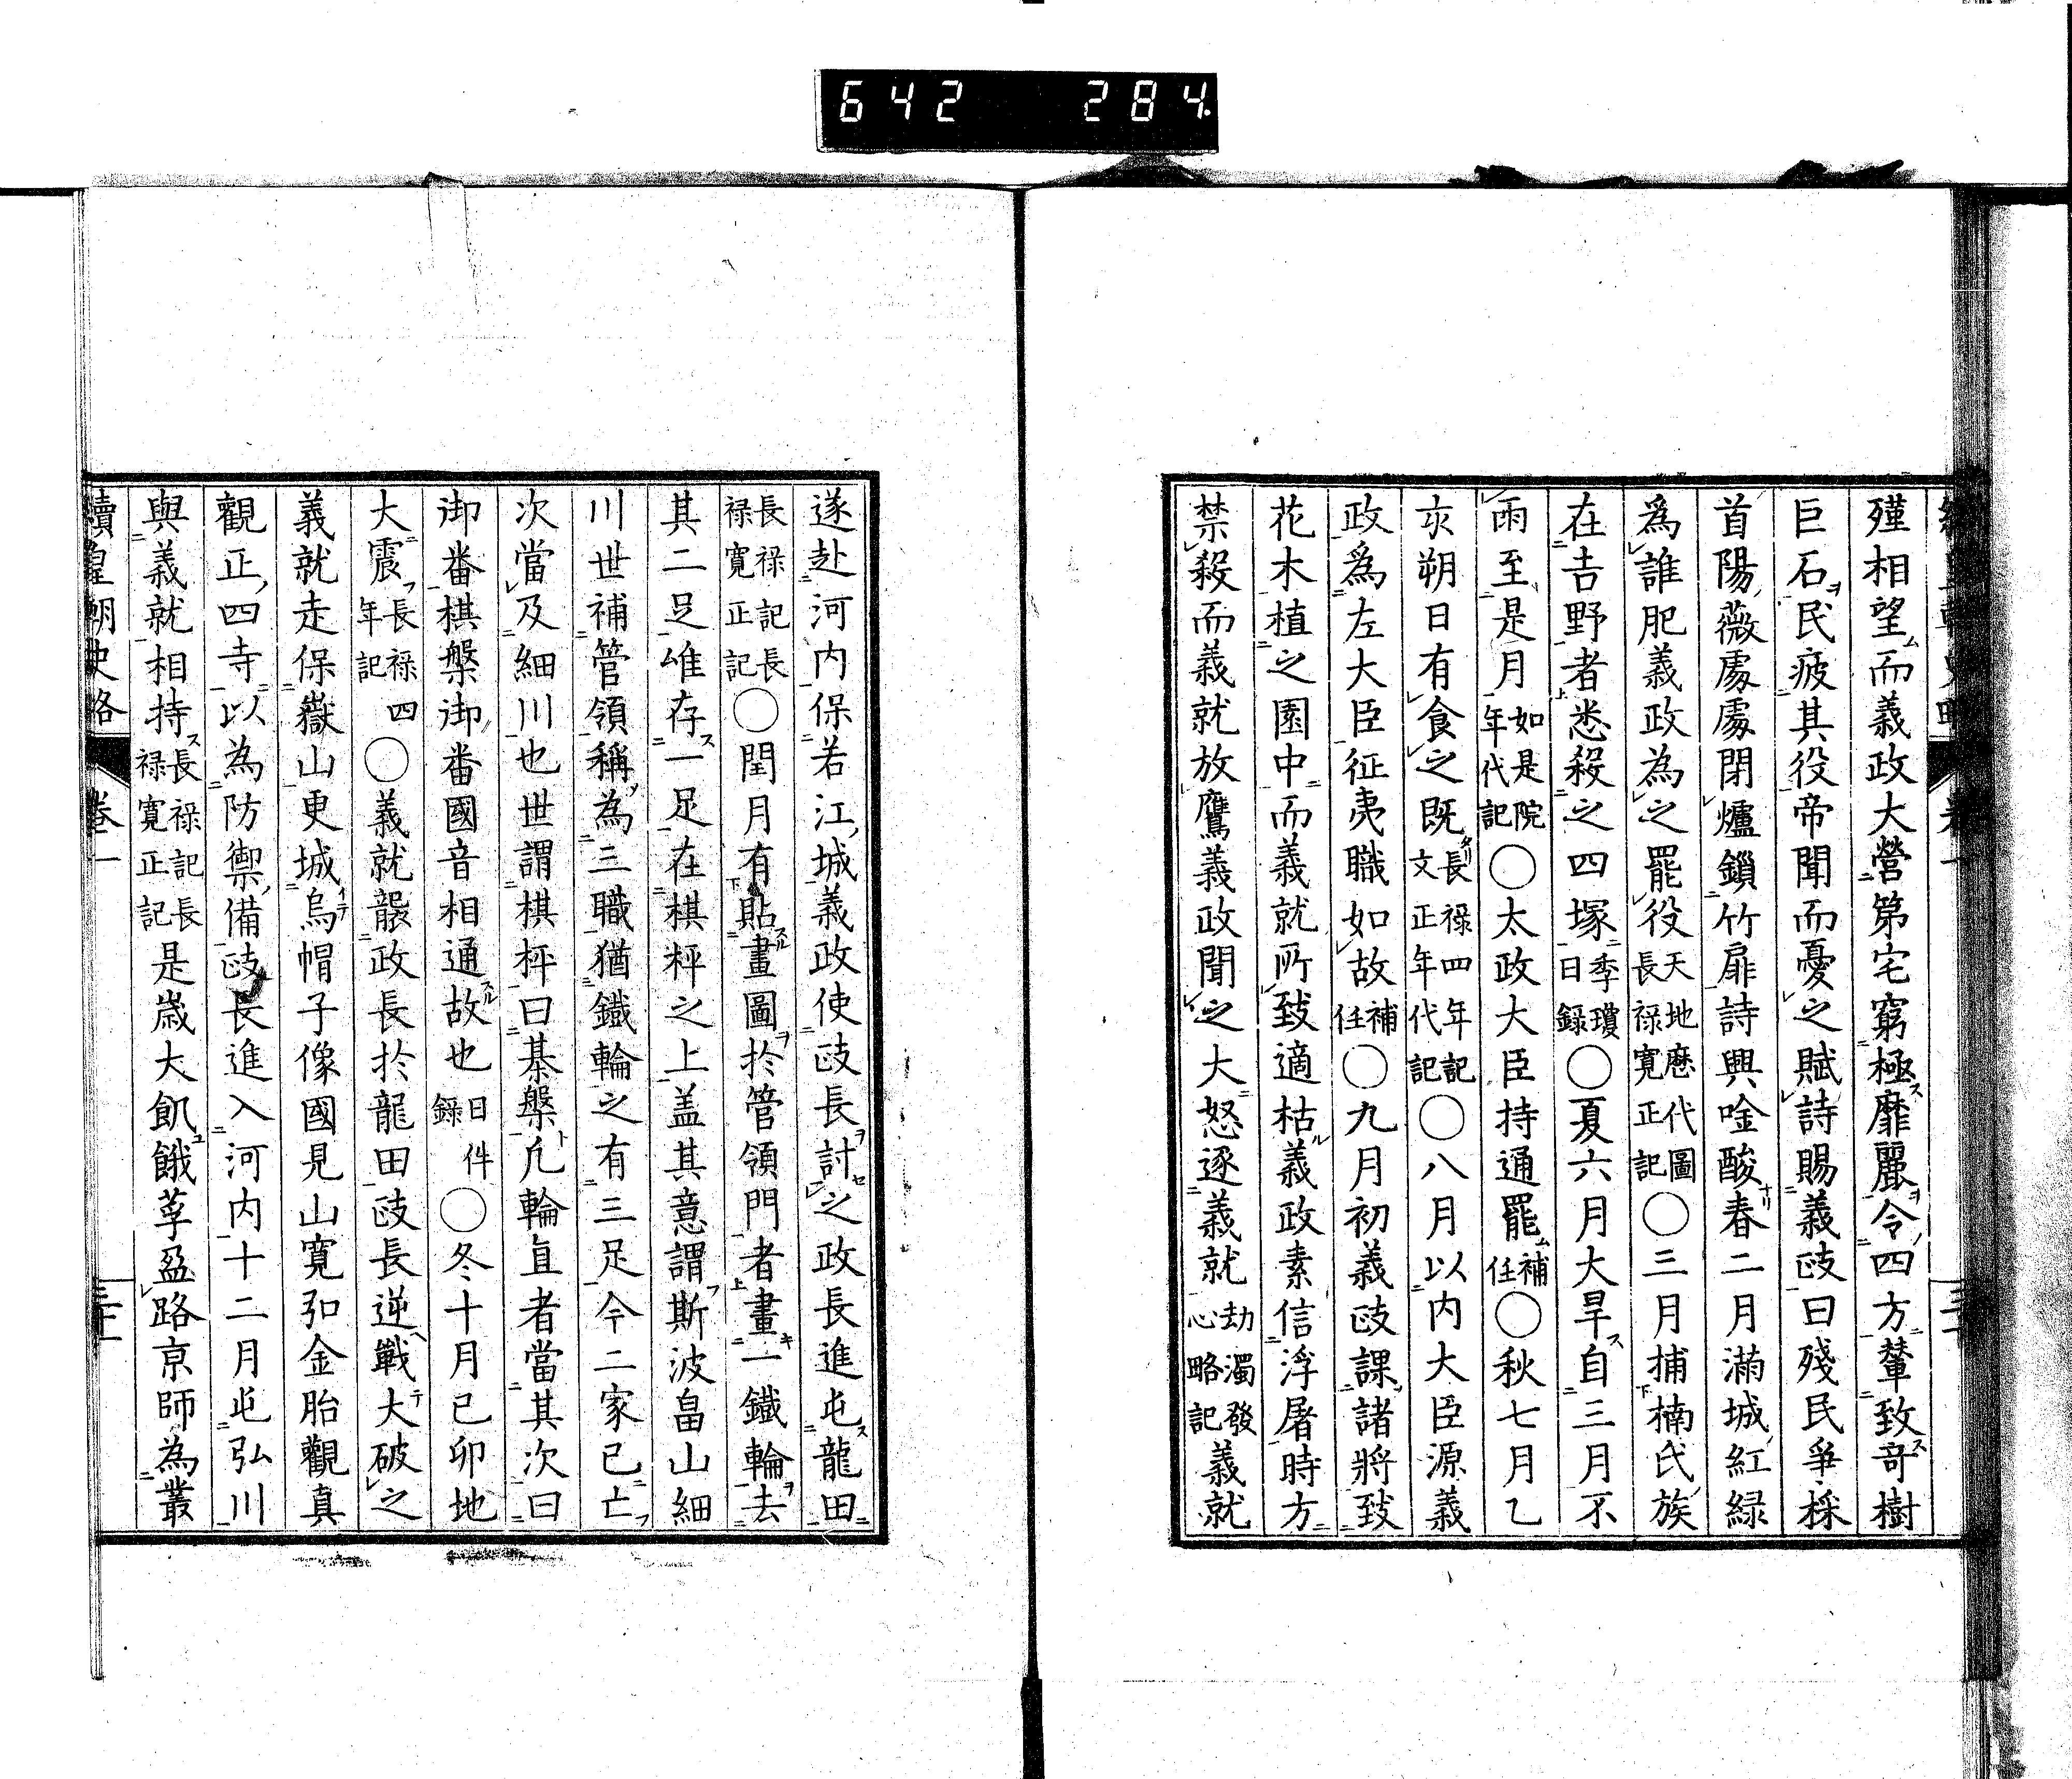 642 284
殣相望而義政大營第宅窮極靡麗令四方輦致竒樹
巨石民疲其役帝聞而憂之賦詩賜義政曰殘民爭採
首陽薇處處閉爐鎖竹扉詩興唫酸春二月滿城紅緑
爲誰肥義政為之罷役天地歴代圖長禄寛正記〇三月捕楠氏族
在吉野者悉殺之四塚季瓊日録〇夏六月大旱自三月不
雨至是月如是院年代記〇太政大臣持通罷補任〇秋七月乙
亥朔日有食之既長禄四年記文正年代記〇八月以内大臣源義
政爲左大臣征夷職如故補任〇九月初義政課諸將致
花木植之園中而義就所致適枯義政素信浮屠時方
禁殺而義就放鷹義政聞之大怒逐義就劫濁發心略記義就
遂赴河内保若江城義政使政長討之政長進屯龍田
長禄記長禄寛正記〇閏月有貼畫圖於管領門者畫一鐵輪去
其二足唯存一足在棋枰之上盖其意謂斯波畠山細
川世補管領稱為三職猶鐵輪之有三足今二家已亡
次當及細川也世謂棋枰曰棊槃凢輪直者當其次曰
御番棋槃御番國音相通故也日件録〇冬十月己卯地
大震長禄四年記〇義就襲政長於龍田政長逆戰大破之
義就走保嶽山更城烏帽子像國見山寛弘金胎觀真
觀正四寺以為防禦備政長進入河内十二月屯弘川
與義就相持長禄記長禄寛正記是歳大飢餓莩盈路京師為叢
續皇朝史略 卷一